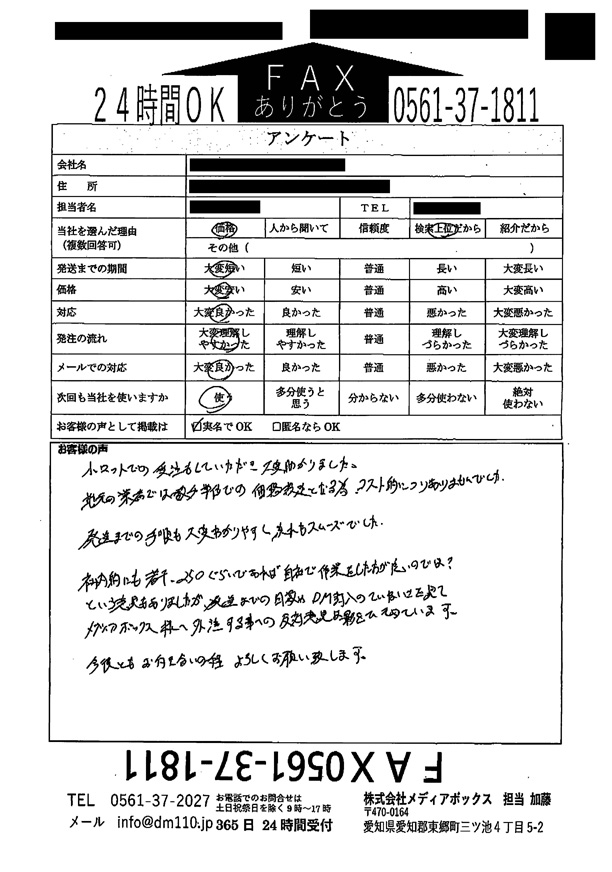 FAX
ありがとう
24時間OK 0561-37-1811
アンケート
会社名
住 所
担当者名 TEL
当社を選んだ理由 (複数回答可) 価格 人から聞いて 信頼度 検索上位だから 紹介だから
その他( )
発送までの期間 大変短い 短い 普通 長い 大変長い
価格 大変安い 安い 普通 高い 大変高い
対応 大変良かった 良かった 普通 悪かった 大変悪かった
発注の流れ 大変理解しやすかった 理解しやすかった 普通 理解しづらかった 大変理解しづらかった
メールでの対応 大変良かった 良かった 普通 悪かった 大変悪かった
次回も当社を使いますか 使う 多分使うと思う 分からない 多分使わない 絶対使わない
お客様の声として掲載は ☑実名でOK □匿名ならOK
お客様の声
小ロットでの受注をしていただき大変助かりました。
地元の業者では 単位での価格設定となる為、コスト的につりありませんでした。
発送までの手順も大変わかりやすく、 もスムーズでした。
社内的にも若干、250ぐらいであれば自社で作業をした方が良いのでは?
という意見もありましたが、発送までの日数や DM封入のていねいさを見て
メディアボックス様へ外注する事への反対意見も影をひそめています。
今後ともお付き合いの程 よろしくお願い致します。
FAX0561-37-1811
TEL 0561-37-2027 お電話でのお問合せは土日祝祭日を除く9時~17時
メール info@dm110.jp 365日 24時間受付
株式会社メディアボックス 担当 加藤
〒470-0164
愛知県愛知郡東郷町三ツ池4丁目5-2